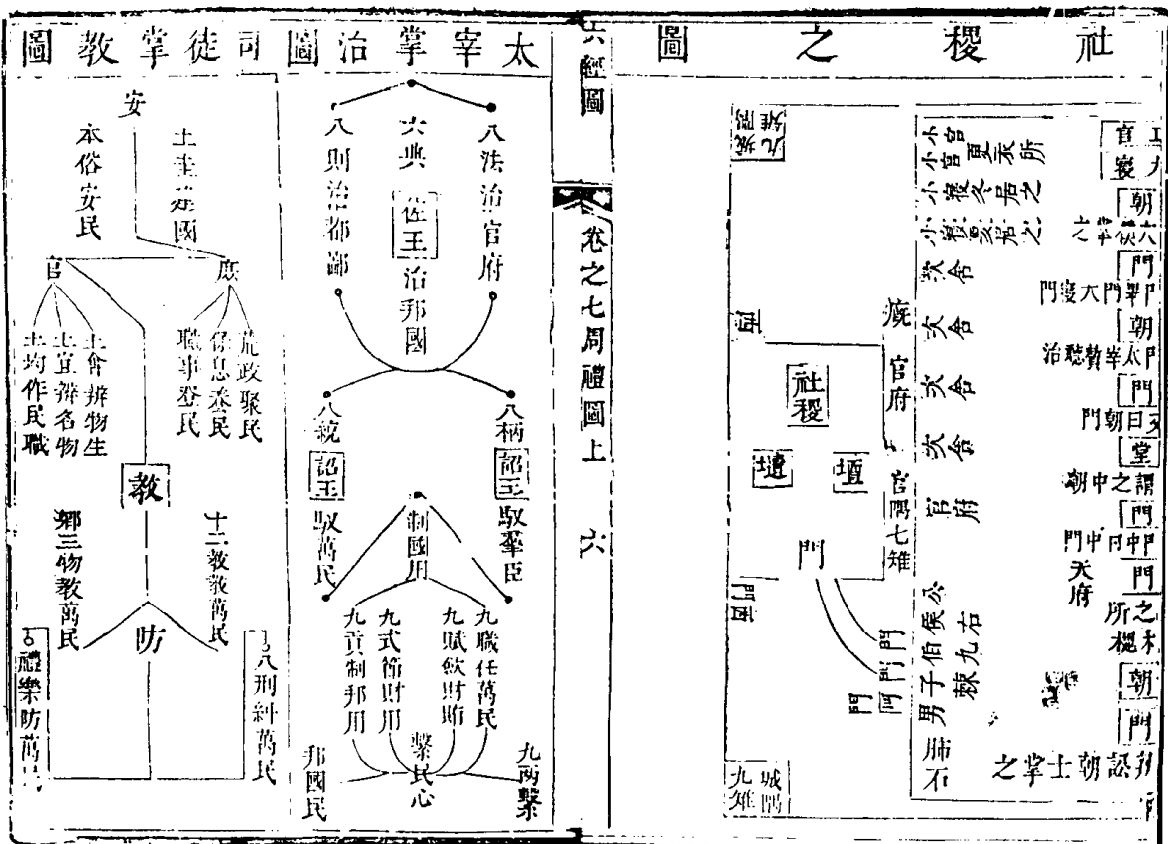 社稷之圖
官
寢
朝
門
門寢大門畢門
朝
治聽贊宰太門
門
門朝曰又
堂
朝中之謂
門
門中
門
天府
所之
朝
門
之掌士朝訟
小宮
小宮夏衣所
小寢冬居之
小寢夏居之
次舍
次舍
次舍
次舍
官府
公侯伯子男
右九棘
肺石
官府
宮隅七雉
社稷
壝
壇
門
門
門
門
門
門
城隅
九雉
城隅
九雉
六經圖
卷之七周禮圖上
六
太宰掌治圖
八法治官府
六典
佐王
治邦國
八則治都鄙
八柄
詔王
馭羣臣
八統
詔王
馭萬民
制國用
九職任萬民
九賦斂財賄
九式節財用
九貢制邦用
九两繫
繫民心
邦國民
司徒掌教圖
安
土圭建國
本俗安民
庶
官
荒政聚民
保息養民
職事登民
土會辨物生
土宜辨名物
土均作民職
教
十二教教萬民
鄉三物教萬民
防
八刑糾萬民
禮樂防萬民